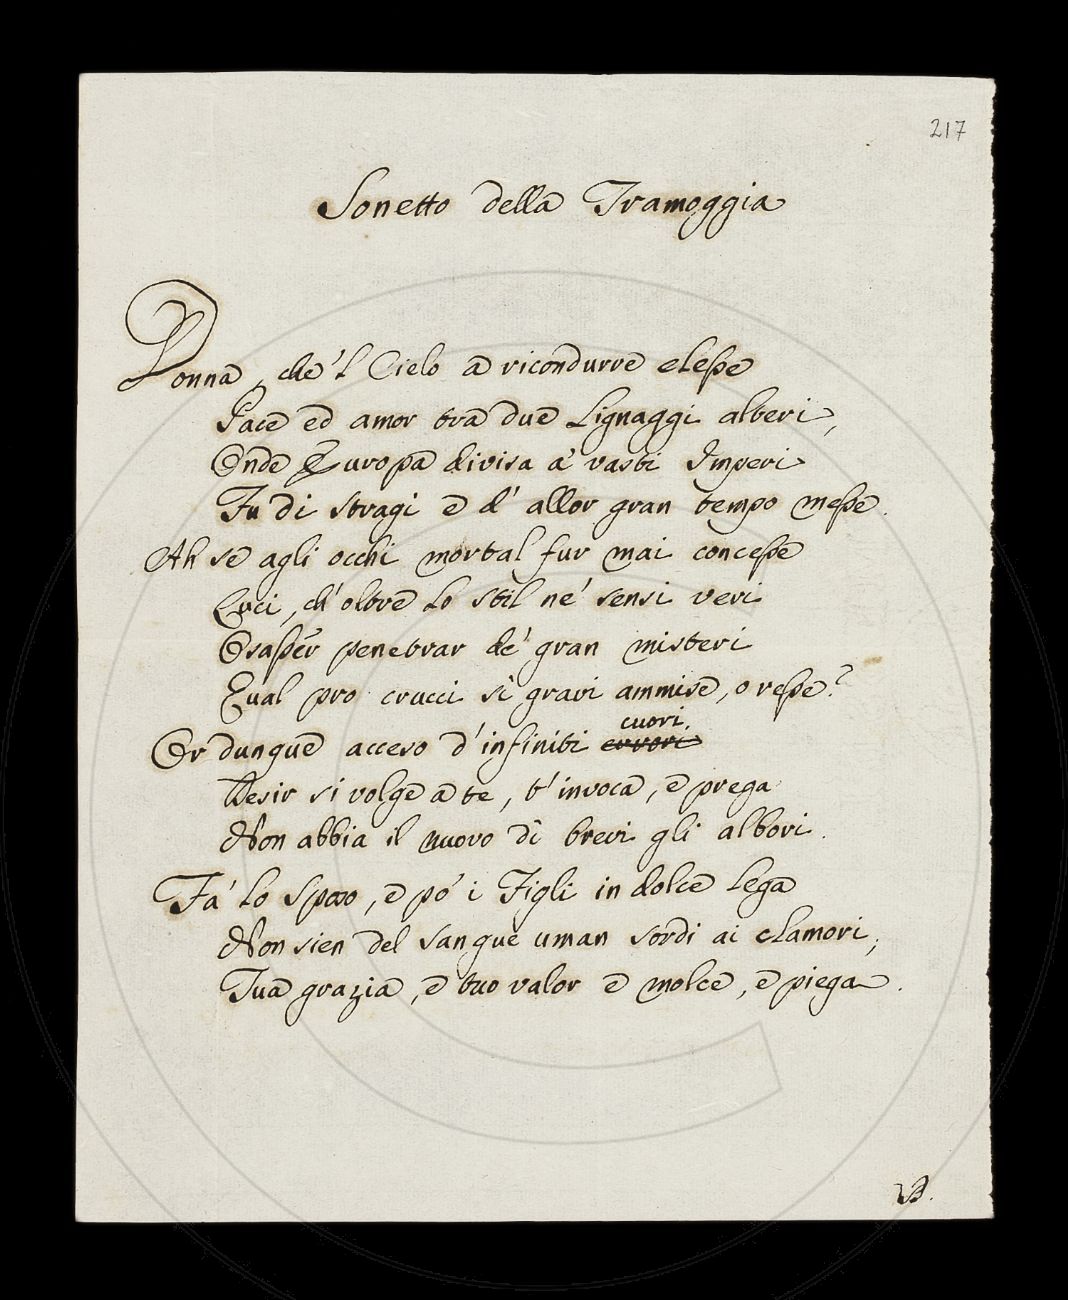 217
Sonetto della Tramoggia
Donna, che 'l Cielo a ricondurre elesse
Pace ed amor tra due Lignaggi alteri,
Onde Europa divisa a' vasti Imperi
Fu di stragi e d' allor gran tempo messe.
Ah se agli occhi mortal fur mai concesse
Luci, ch' oltre lo stil ne' sensi veri
Osasser penetrar de' gran misteri
Qual pro crucci sì gravi ammise, o resse?
Or dunque acceso d' infiniti cuori
Desir si volge a te, t' invoca, e prega
Non abbia il nuovo dì brevi gli albori.
Fa' lo sposo, e po' i Figli in dolce lega
Non sien del sangue uman sordi ai clamori;
Tua grazia, e tuo valor e molce, e piega.
B.